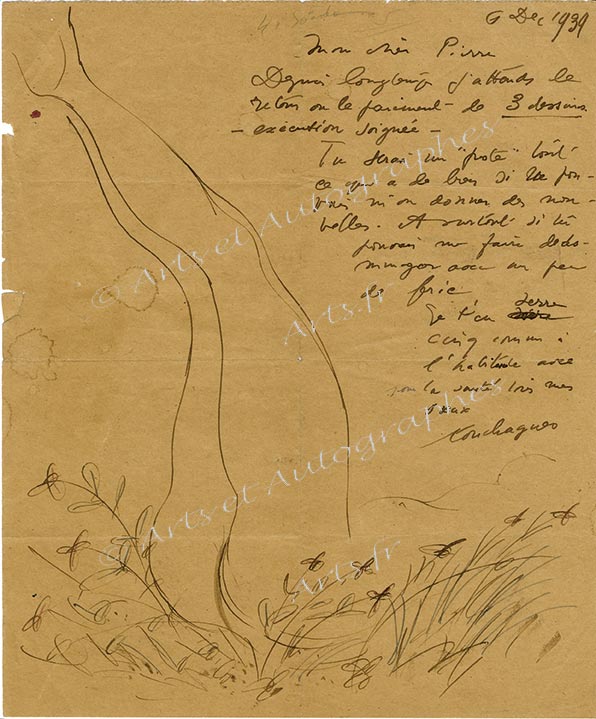 6 Dec 1939
Mon cher Pierre
Depuis longtemps j'attends le
retour ou le paiement de 3 dessins
— exécution soignée —
Tu serais un "pote" tout
ce qu'il a de bien si tu pou-
vais m'en donner des nou-
velles. A surtout si tu
pouvais me faire dédo-
mmager avec un peu
de fric
Je t'en serre
cinq comme à
l'habitude avec
pour la santé tous mes
vœux
Touchagues
© Arts et Autographes
Arts.fr
© Arts et Autographes
Arts.fr